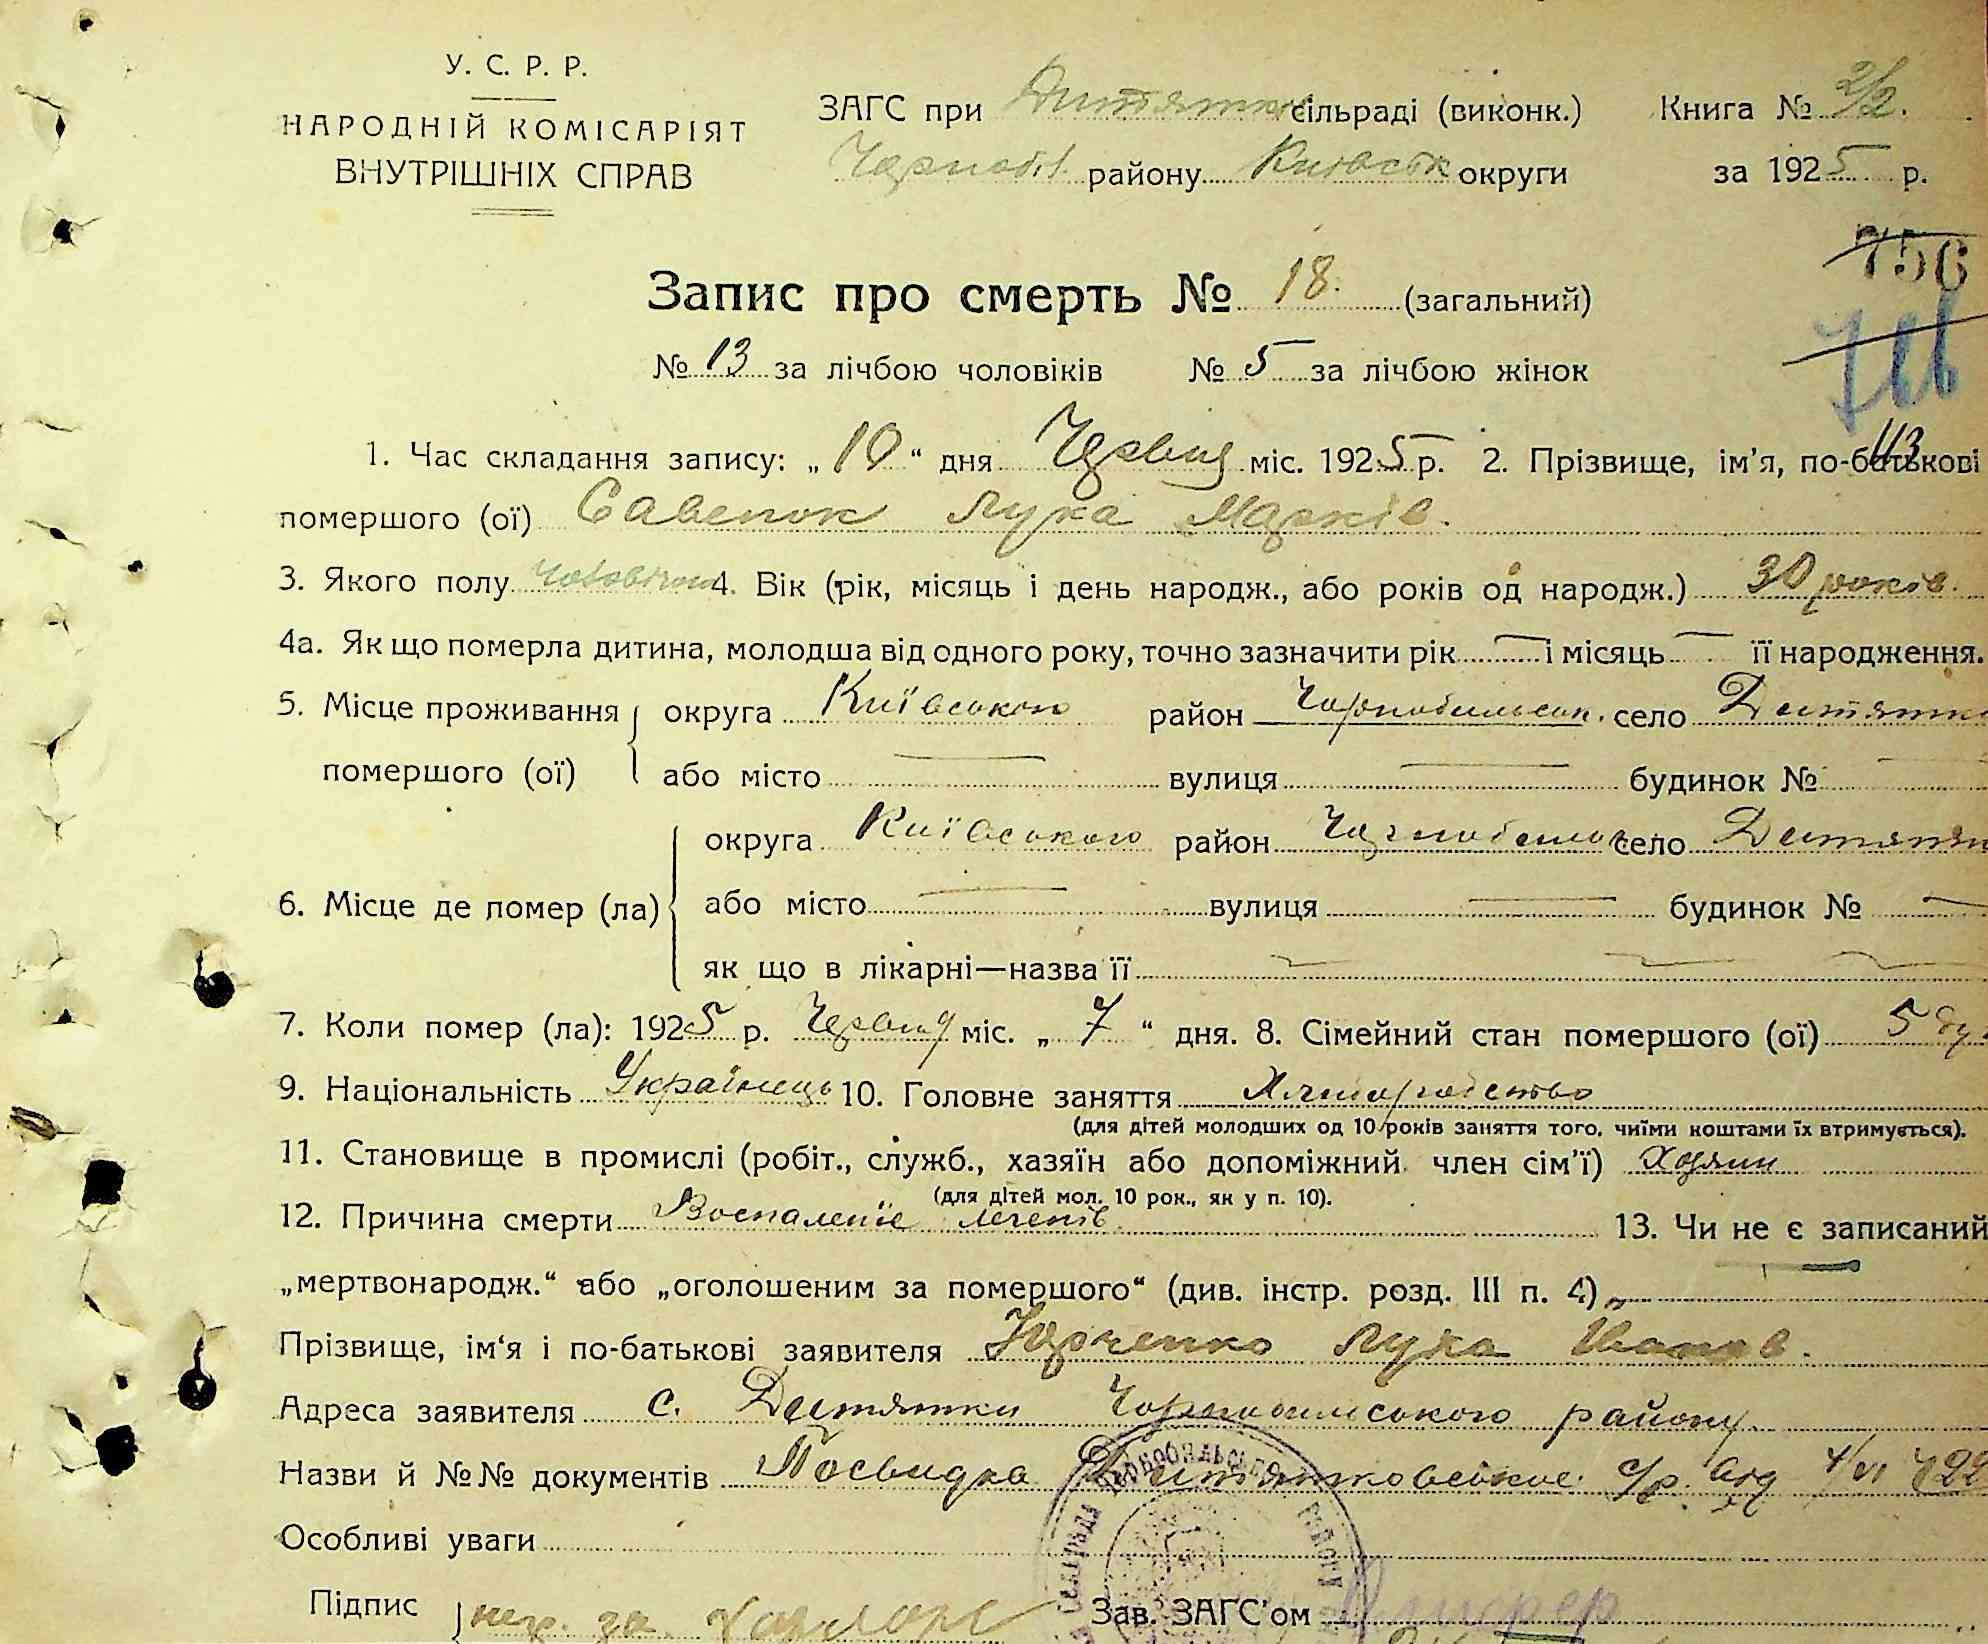 У. С. Р. Р.
НАРОДНІЙ КОМІСАРІЯТ
ВНУТРІШНІХ СПРАВ
ЗАГС при Дитятки сільраді (виконк.) Книга № 2/2.
Чарноб. району Київськ округи за 1925 р.
756
Запис про смерть № 18. (загальний)
№ 13 за лічбою чоловіків № 5 за лічбою жінок
113
1. Час складання запису: „10“ дня Червця міс. 1925 р. 2. Прізвище, ім'я, по-батькові
помершого (ої) Савенок Лука Марків.
3. Якого полу 4. Вік (рік, місяць і день народж., або років од народж.) 30 років.
4а. Як що померла дитина, молодша від одного року, точно зазначити рік — і місяць — її народження.
5. Місце проживання помершого (ої) округа Київського район Чорнобильськ. село Дитятки
або місто — вулиця — будинок № —
6. Місце де помер (ла) округа Київського район село Дитятки
або місто — вулиця — будинок № —
як що в лікарні—назва її —
7. Коли помер (ла): 1925 р. Червця міс. „7“ дня. 8. Сімейний стан помершого (ої) 5 ду.
9. Національність Українець 10. Головне заняття
(для дітей молодших од 10 років заняття того, чиїми коштами їх втримується).
11. Становище в промислі (робіт., служб., хазяїн або допоміжний член сім'ї) Хозяин
(для дітей мол. 10 рок., як у п. 10).
12. Причина смерти Воспаленіе легенів 13. Чи не є записаний
„мертвонародж.“ або „оголошеним за помершого“ (див. інстр. розд. III п. 4) —
Прізвище, ім'я і по-батькові заявителя Юрченко Лука Іванов.
Адреса заявителя с. Дитятки Чорнобильського району
Назви й №№ документів Посвидка Дитятковської с/р. від
Особливі уваги
Підпис Зав. ЗАГС'ом